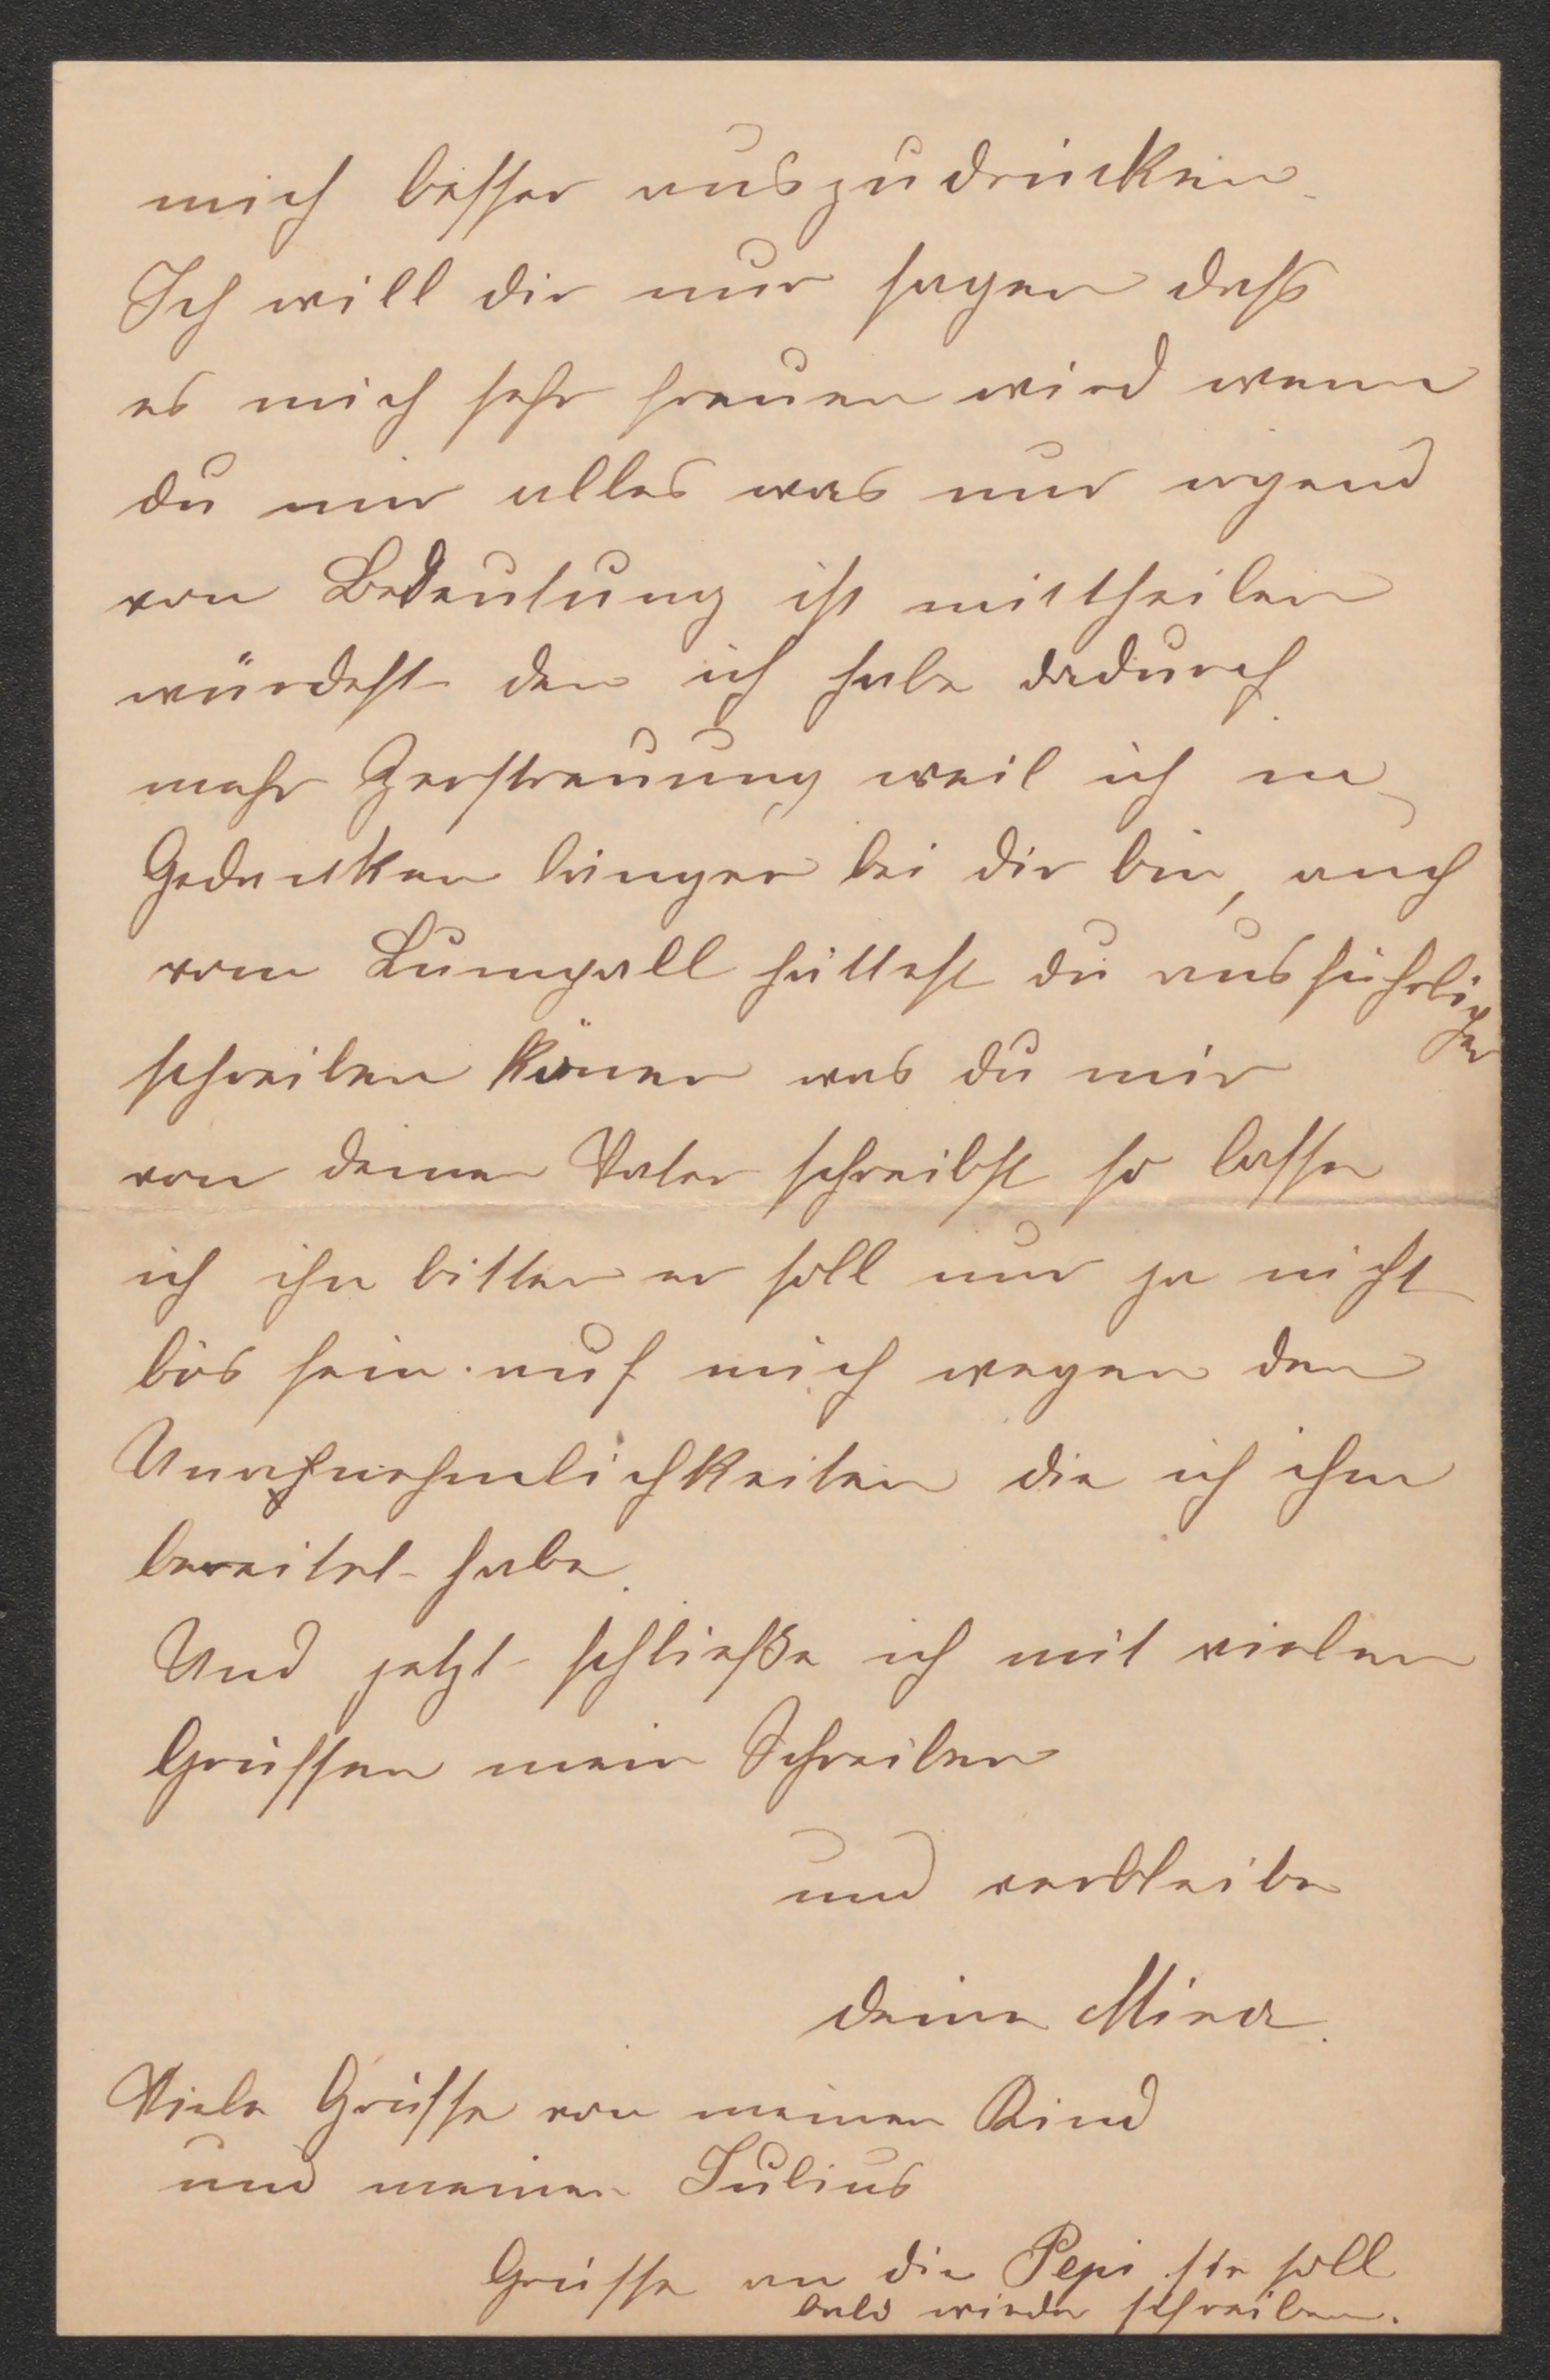 mich besser auszudrücken.
Ich will dir nur sagen dass
es mich sehr freuen wird wenn
du mir alles was nur irgend
von Bedeutung ist mittheilen
würdest den ich habe dadurch
mehr Zerstreuung weil ich in
Gedanken länger bei dir bin, auch
vom hättest du ausführlicher
schreiben könen was du mir
von deinen Vater schreibst so lasse
ich ihn bitten er soll nur ja nicht
bös sein auf mich wegen den
Unahnehmlichkeiten die ich ihm
bereitet habe.
Und jetzt schließe ich mit vielen
Grüssen mein Schreiben
und verbleibe
deine Mina.
Viele Grüsse von meinen Kind
und meinen Julius
Grüsse an die Pepi sie soll
bald wieder schreiben.